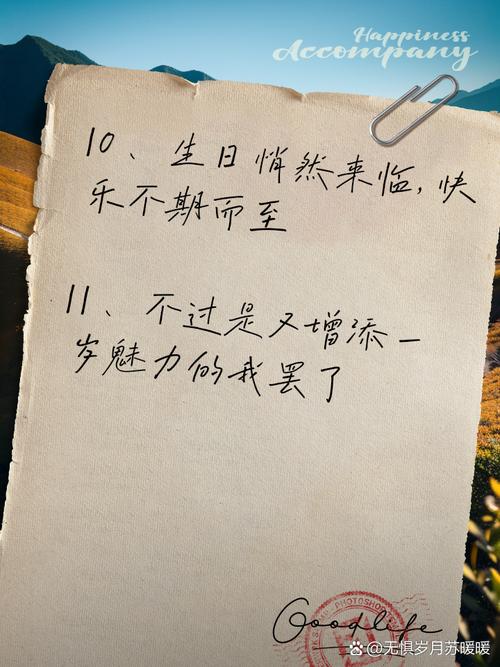 Happiness
Accompany
10、生日悄然来临，快
乐不期而至
11、不过是又增添一
岁魅力的我罢了
Goodlife
PHOTOSHOP
@无惧岁月苏暖暖